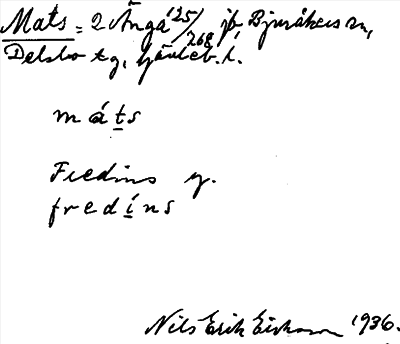 Mats = 2 Ängå 25/268 jb, Bjuråkers sn,
Delsbo tg, Gävleb. l.
máts
Fredins g.
fredíns
Nils Erik Eriksson 1936.